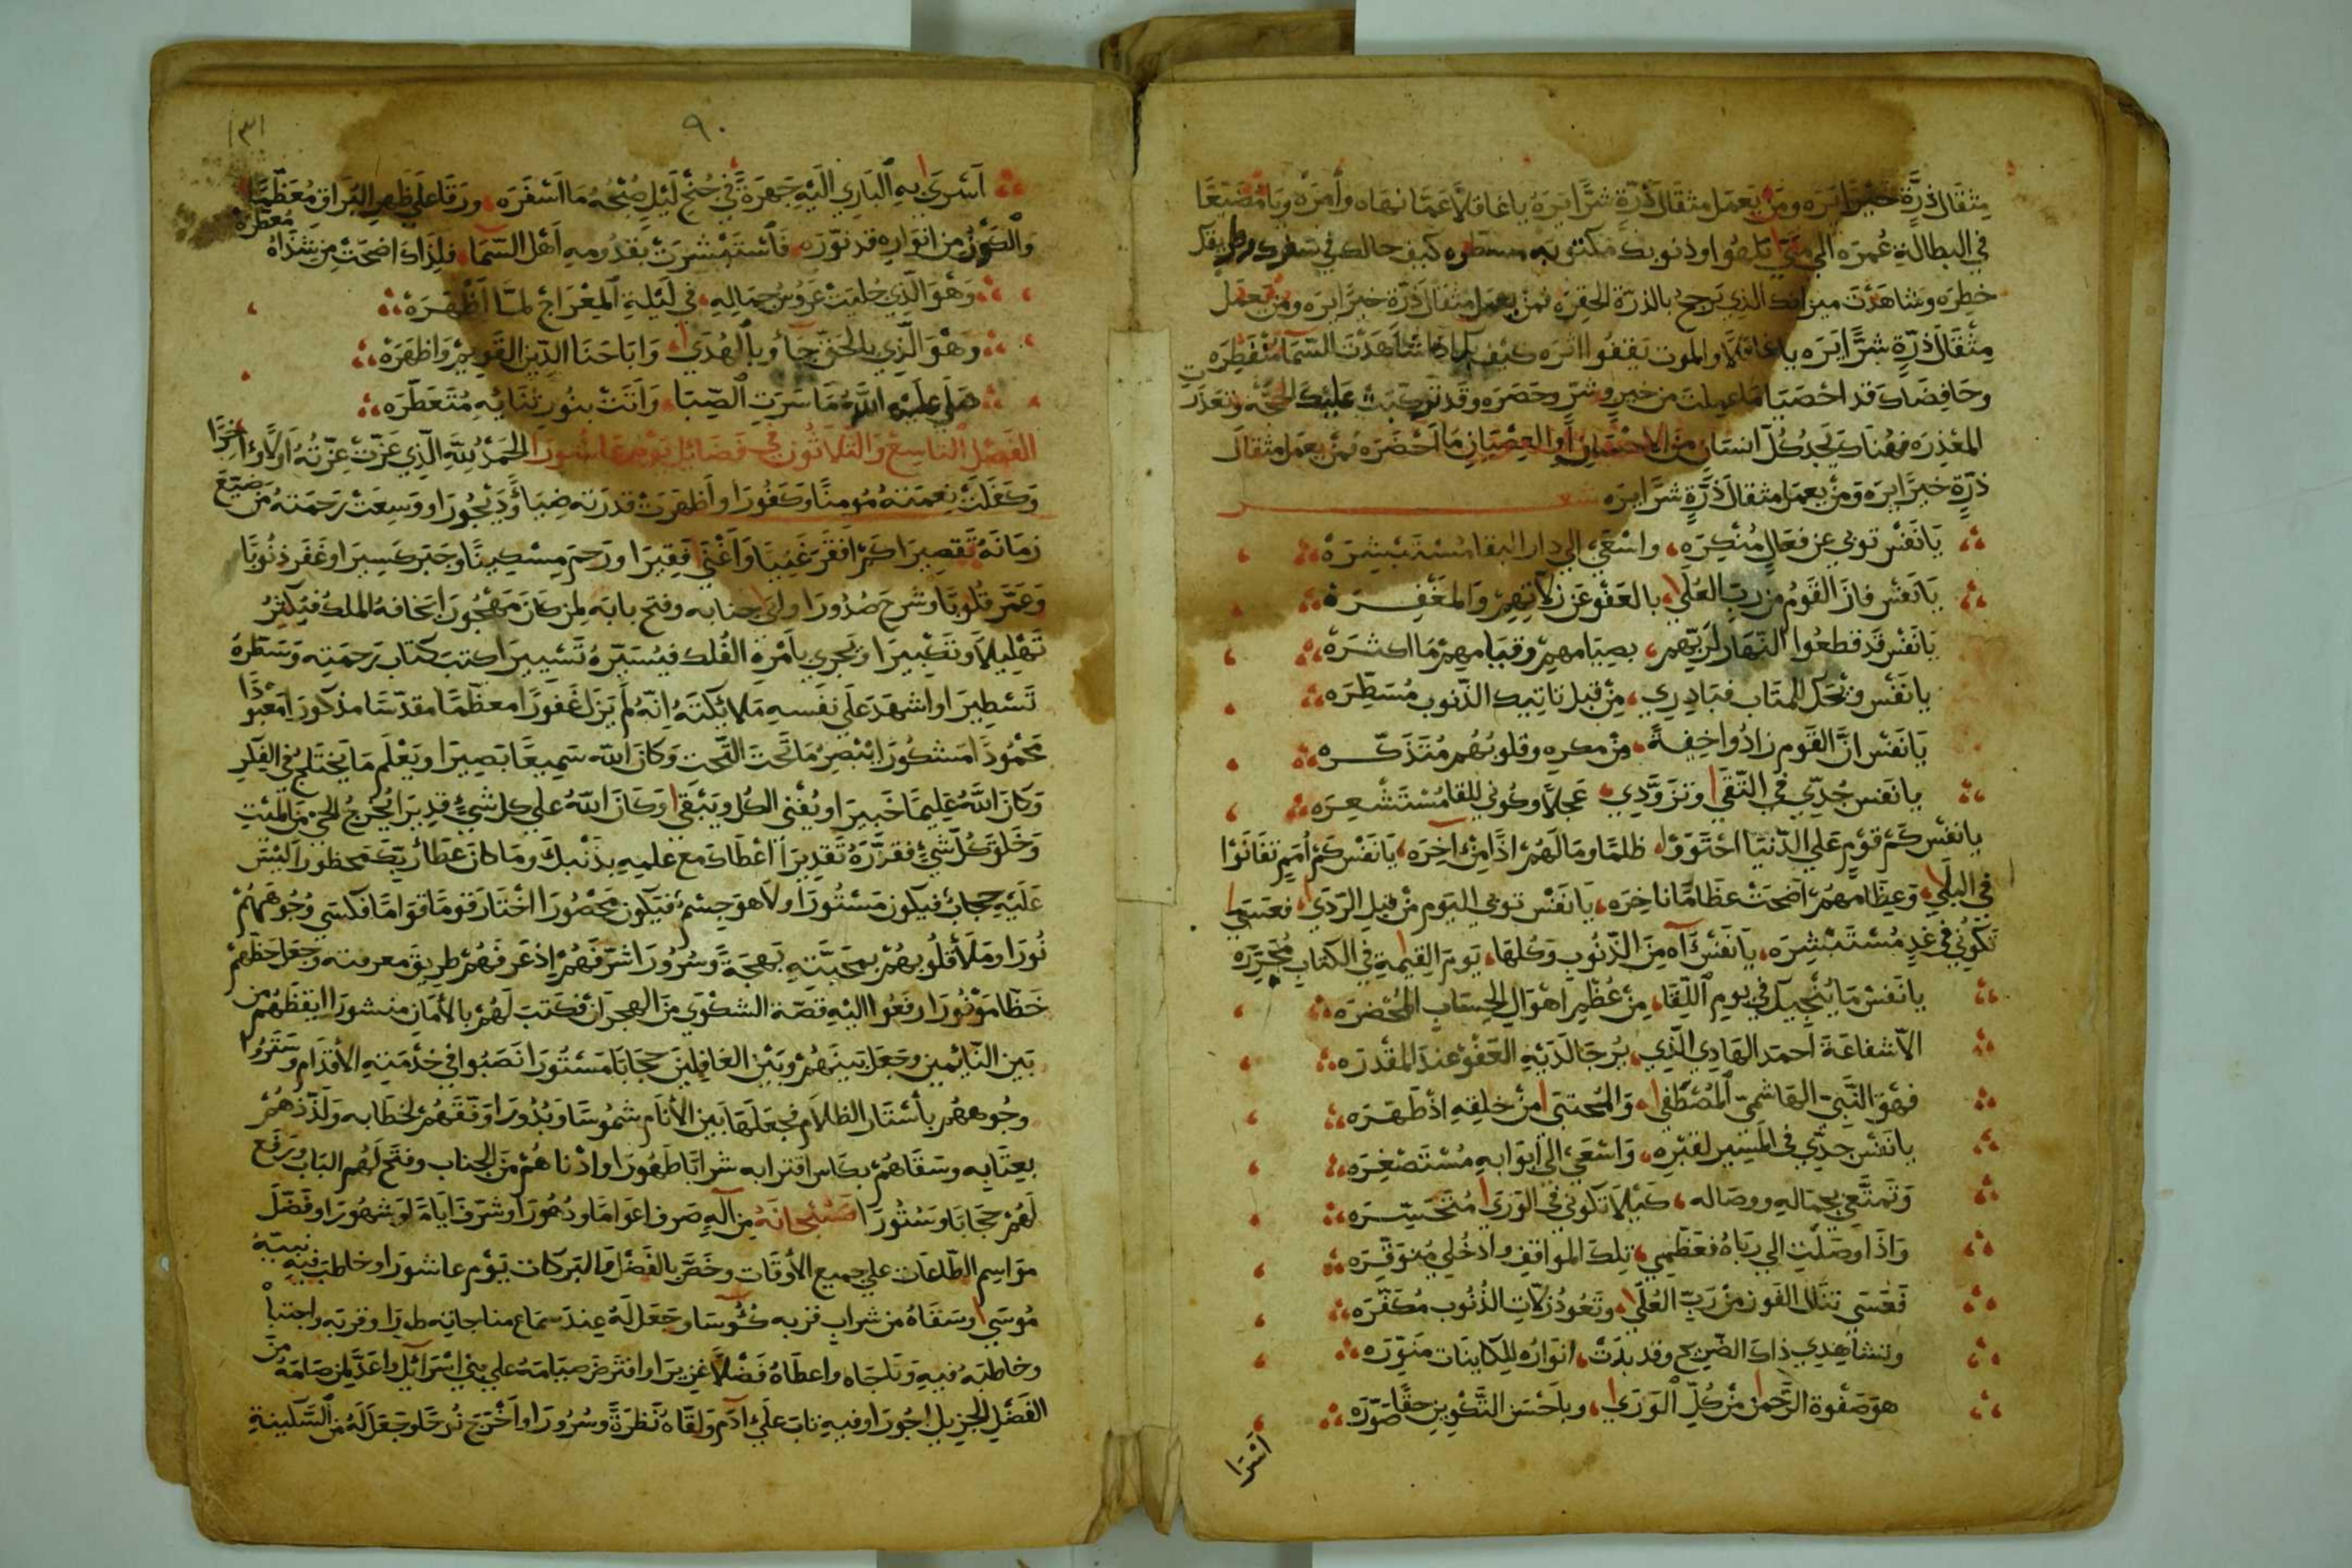 مثقال ذرّة خيرًا يره ومن يعمل مثقال ذرّة شرًّا يره يا غافلاً عمّا نهاه وأمره ويا مضيّعًا
في البطالة عمره الي متي تلهوا وذنوبك مكتوبه مسطره كيف حالك في سفرك وطريقك
خطره وشاهدت ميزانك الذي يرجح بالذرّة الحقره فمن يعمل مثقال ذرّة خيرًا يره ومن يعمل
مثقال ذرّة شرًّا يره يا غافلاً والموت يقفوا اثره كيف بك اذا شاهدت السّمآ منفطره
وحافضاك قد احصيا ما عملت من خير وشرّ وحصره وقد توجّبت عليك الحجّة وتعذّرت
المعذره فهناك يجد كلّ انسان من الاحسان والعصيان ما احضره فمن يعمل مثقال
ذرّة خيرًا يره ومن يعمل مثقال ذرّة شرًّا يره شعر
يا نفس توبي عن فعال منكره، واسعي الي دار البقا مستبشره
يا نفس فاز القوم من ربّ العلي، بالعفو عن زلاّتهم والمغفره
يا نفس قد قطعوا النّهار لربّهم، بصيامهم وقيامهم ما اكثره
يا نفس ويحك للمتاب فبادري، من قبل تاتيك الذّنوب مسطّره
يا نفس انّ القوم زادوا خيفةً، من مكره وقلوبهم متذكّره
يا نفس جدّي في التّقي وتزوّدي، عجلاً وكوني للقا مستشعره
يا نفس كم قوم علي الدّنيا احتووا، ظلمًا وما لهم اذًا من آخره، يا نفس كم امم تفانوا
في البلي، وعظامهم اضحت عظامًا ناخره، يا نفس توبي اليوم من قبل الرّدي، فعسي
تكوني في غد مستبشره، يا نفس آه من الذّنوب وكلها، يوم القيمة في الكتاب محرّره
يا نفس ما ينجيك في يوم اللّقا، من عظم اهوال الحساب المحضره
الاّ شفاعة احمد الهادي الّذي، يرجا لديه العفو عند المقدره
فهو النّبيّ الهاشميّ المصطفي، والمجتبي من خلقه اذ طهره
يا نفس جدّي في المسير لقبره، واسعي الي ابوابه مستصغره
وتمتّعي بجماله ووصاله، كيلا تكوني في الوري متحسّره
واذا وصلت الي رباه فعظّمي، تلك المواقف وادخلي متوقّره
فعسي تنال الفوز من ربّ العلي، وتعود زلاّت الذّنوب مكفّره
وتشاهدي ذاك الضّريح وقد بدت، انواره للكاينات منوّره
هو صفوة الرّحمن من كلّ الوري، وباحسن التّكوين حقًّا صوّره
اسرا
٩٠
١٣١
اسري به الباري اليه جهرةً، في جنح ليل صبحه ما اسفره، ورقا علي ظهر البراق معظّمًا
والكون من انواره قد نوّره، فاستبشرت بقدومه اهل السّما، فلذاك اضحت من شذاه معطّره
وهو الّذي جليت عروس جماله، في ليلة المعراج لمّا اظهره
وهو الّذي بالحقّ جآ وبالهدي، واباحنا الدّين القويم واظهره
صلّي عليه اللّه ما سرت الصّبا، واتت بنور ثنايه متعطّره
الفصل التاسع والثلاثون في فضائل يوم عاشورا الحمد للّه الّذي عزّت عزّته اوّلاً وآخرًا
وكفلت نعمته مومنًا وكفورا واظهرت قدرته ضياًء وديجورا ووسعت رحمته من ضيّع
زمانه تقصيرا كم افقر غنيا واغني فقيرا ورحم مسكينًا وجبر كسيرا وغفر ذنوبًا
وعمّر قلوبًا وشرح صدورا وليّ جنابه وفتح بابه لمن كان مهجورا تخافه الملك فيكثر
تهليلا وتكبيرا وتجري بامره الفلك فيسيّره تسييرا كتب كتاب رحمته وسطّره
تسطيرا واشهد علي نفسه ملائكته انّه لم يزل غفورًا معظّمًا مقدّسًا مذكورا معبوذًا
محموذًا مشكورا يبصر ما تحت التّحت وكان اللّه سميعًا بصيرا ويعلم ما يختلج في الفكر
وكان اللّه عليمًا خبيرا ويفني الكل ويبقي وكان اللّه علي كل شيءٍ قديرا يخرج الحيّ من الميّت
وخلق كلّ شيءٍ فقدّره تقديرا اعطاك مع علمه بذنبك وما كان عطآء ربّك محظورا ليس
عليه حجاب فيكون مستورا ولا هو جسم فيكون محصورا اختار قومًا قوامًا فكسي وجوههم
نورا وملأ قلوبهم بمحبّته بهجةً وسرورا شرّفهم اذ عرفهم طريق معرفته وجعل حظّهم
حظّا موفورا رفعوا اليه قصّة الشكوي من الهجران فكتب لهم بالأمان منشورا ايقظهم من
بين النّايمين وجعل بينهم وبين الغافلين حجابًا مستورا نصبوا في خذمته الأقدام وستروا
وجوههم بأستار الظلام فجعلها بين الأنام شموسًا وبدورا وفّقهم لخطابه ولذّذهم
بعتابه وسقاهم بكاس اقترابه شرابًا طهورا وادناهم من الجناب وفتح لهم الباب ورفع
لهم حجابا وستورا فسبحانه من آلهٍ صرف اعوامًا ودهورا وشرّف ايامًا وشهورا وفضّل
مواسم الطّاعات علي جميع الأوقات وخصّ بالفضل والبركات يوم عاشورا وخاطب فيه نبيّه
موسي وسقاه من شراب قربه كؤسًا وجعل له عند سماع مناجاته طورا وقربه واجتباه
وخاطبه فيه وناجاه واعطاه فضلاً غزيرا وافترض صيامه علي بني اسرآئيل واعدّ لمن صامه من
الفضل الجزيل اجورا وفيه تاب علي آدم ولقاه نظرةً وسرورا واخرج نوحًا وجعل له من السّكينة